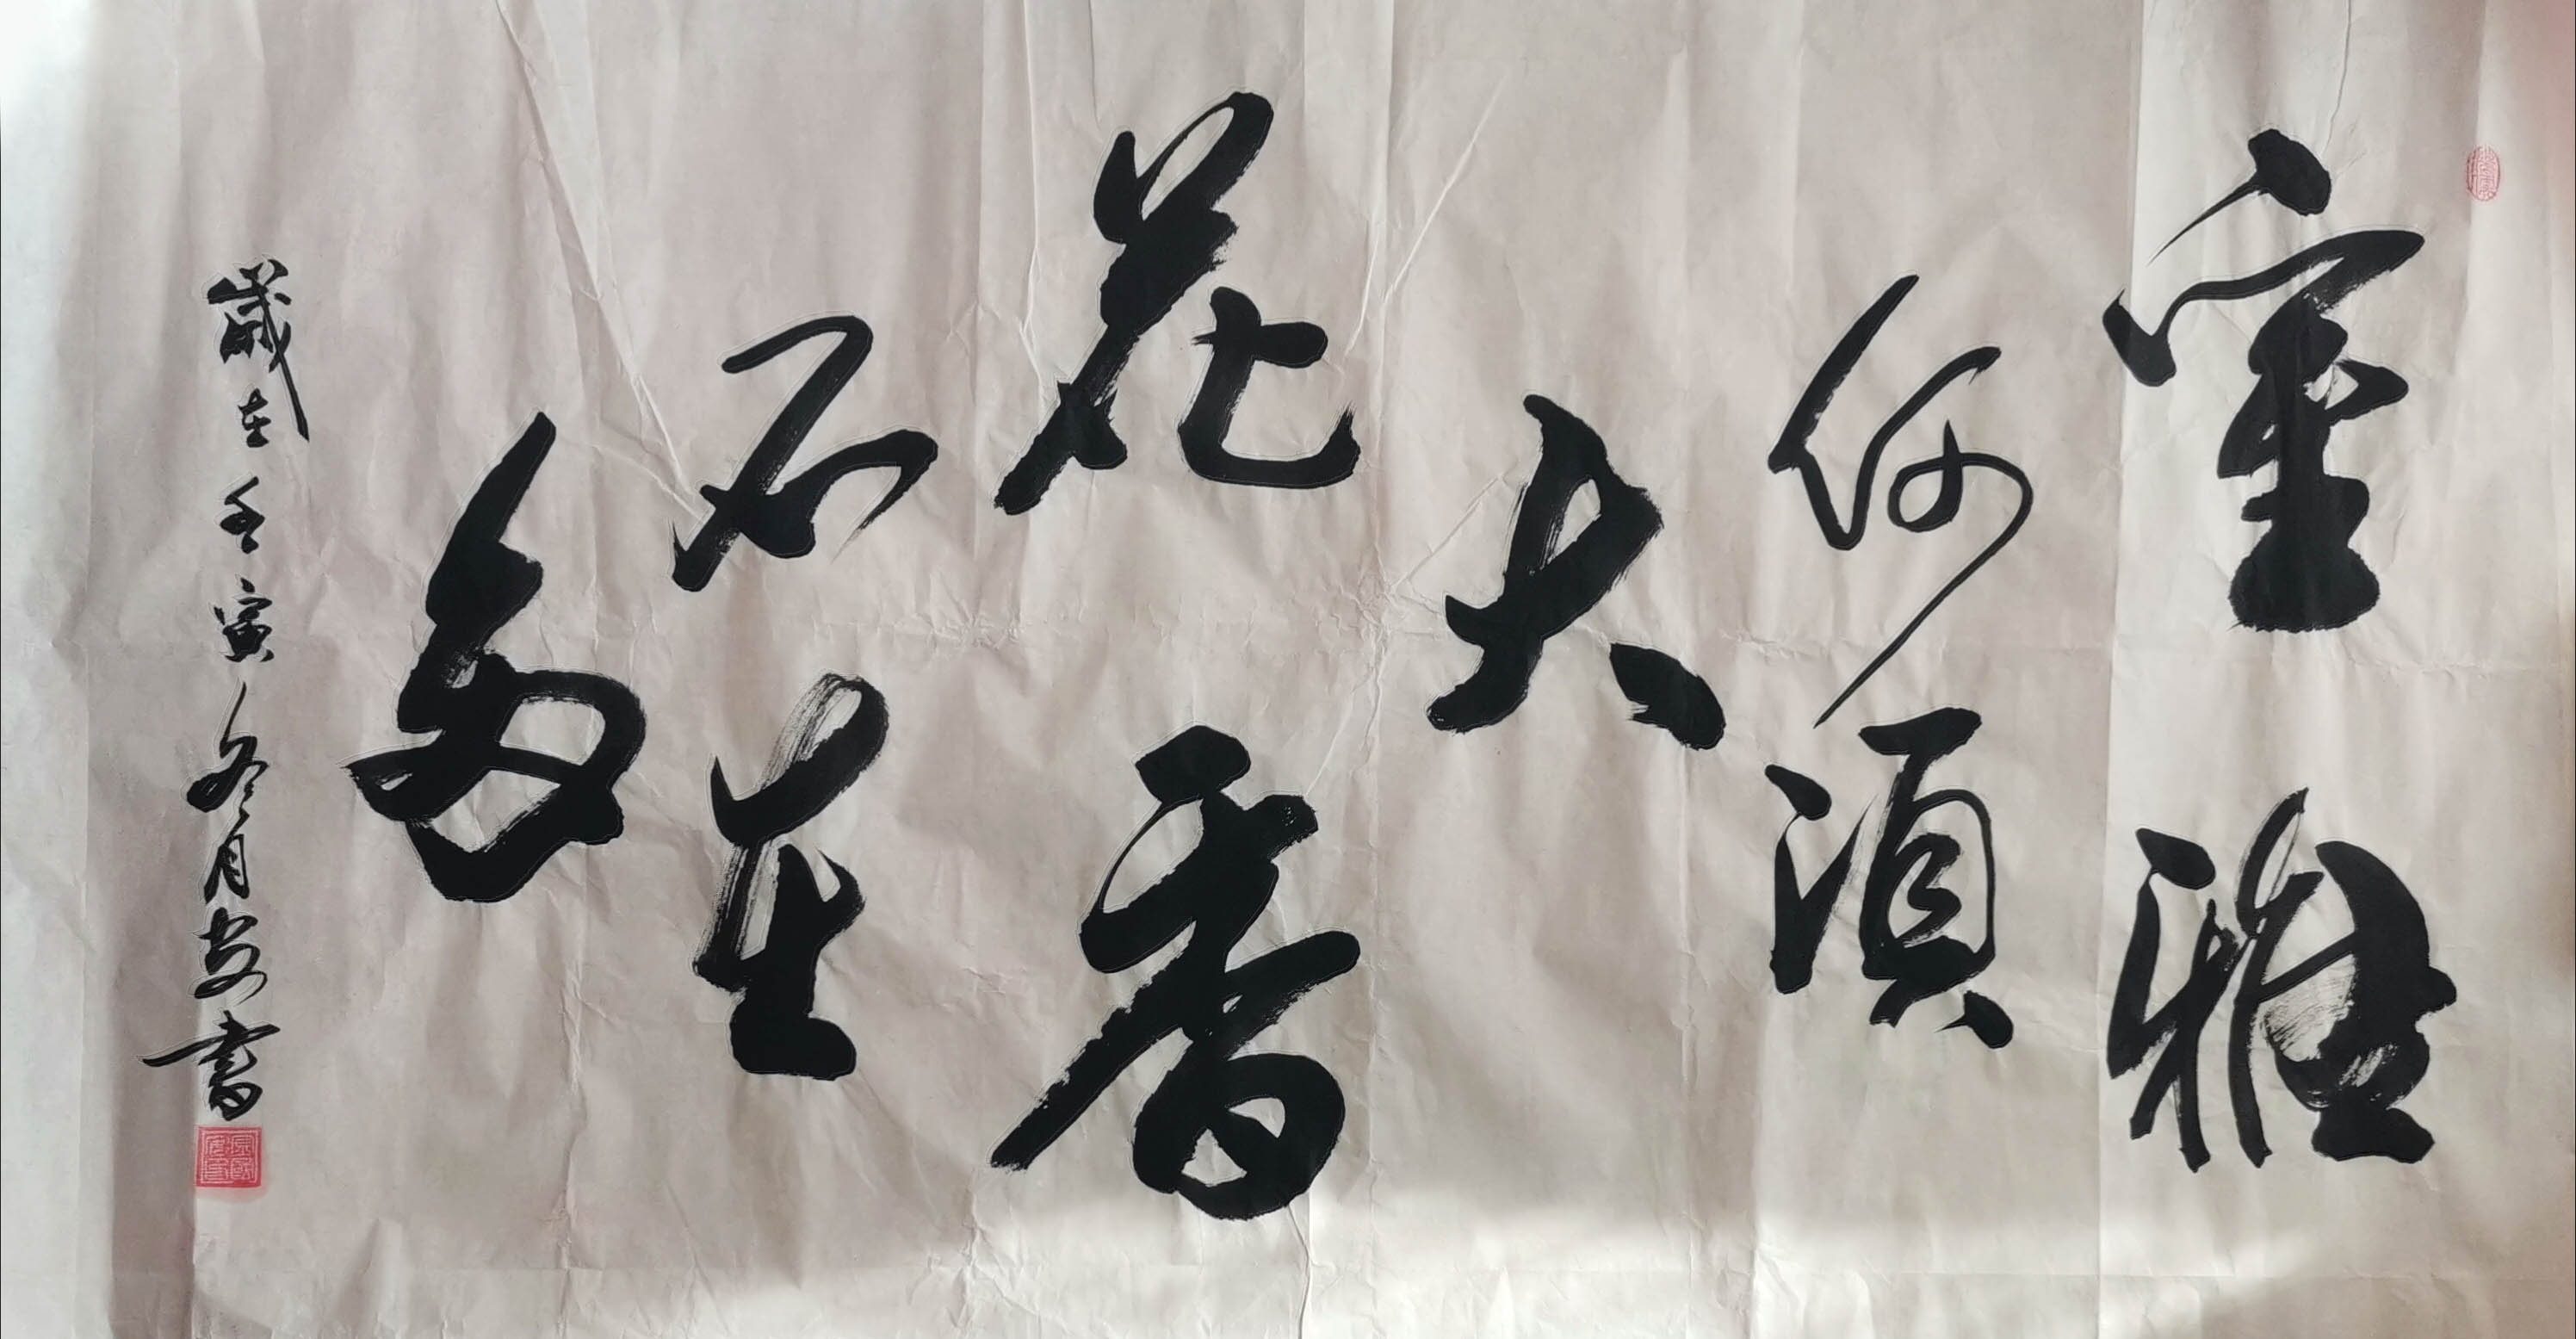 室雅
何須
大
花香
不在
多
歲在壬寅冬月安書